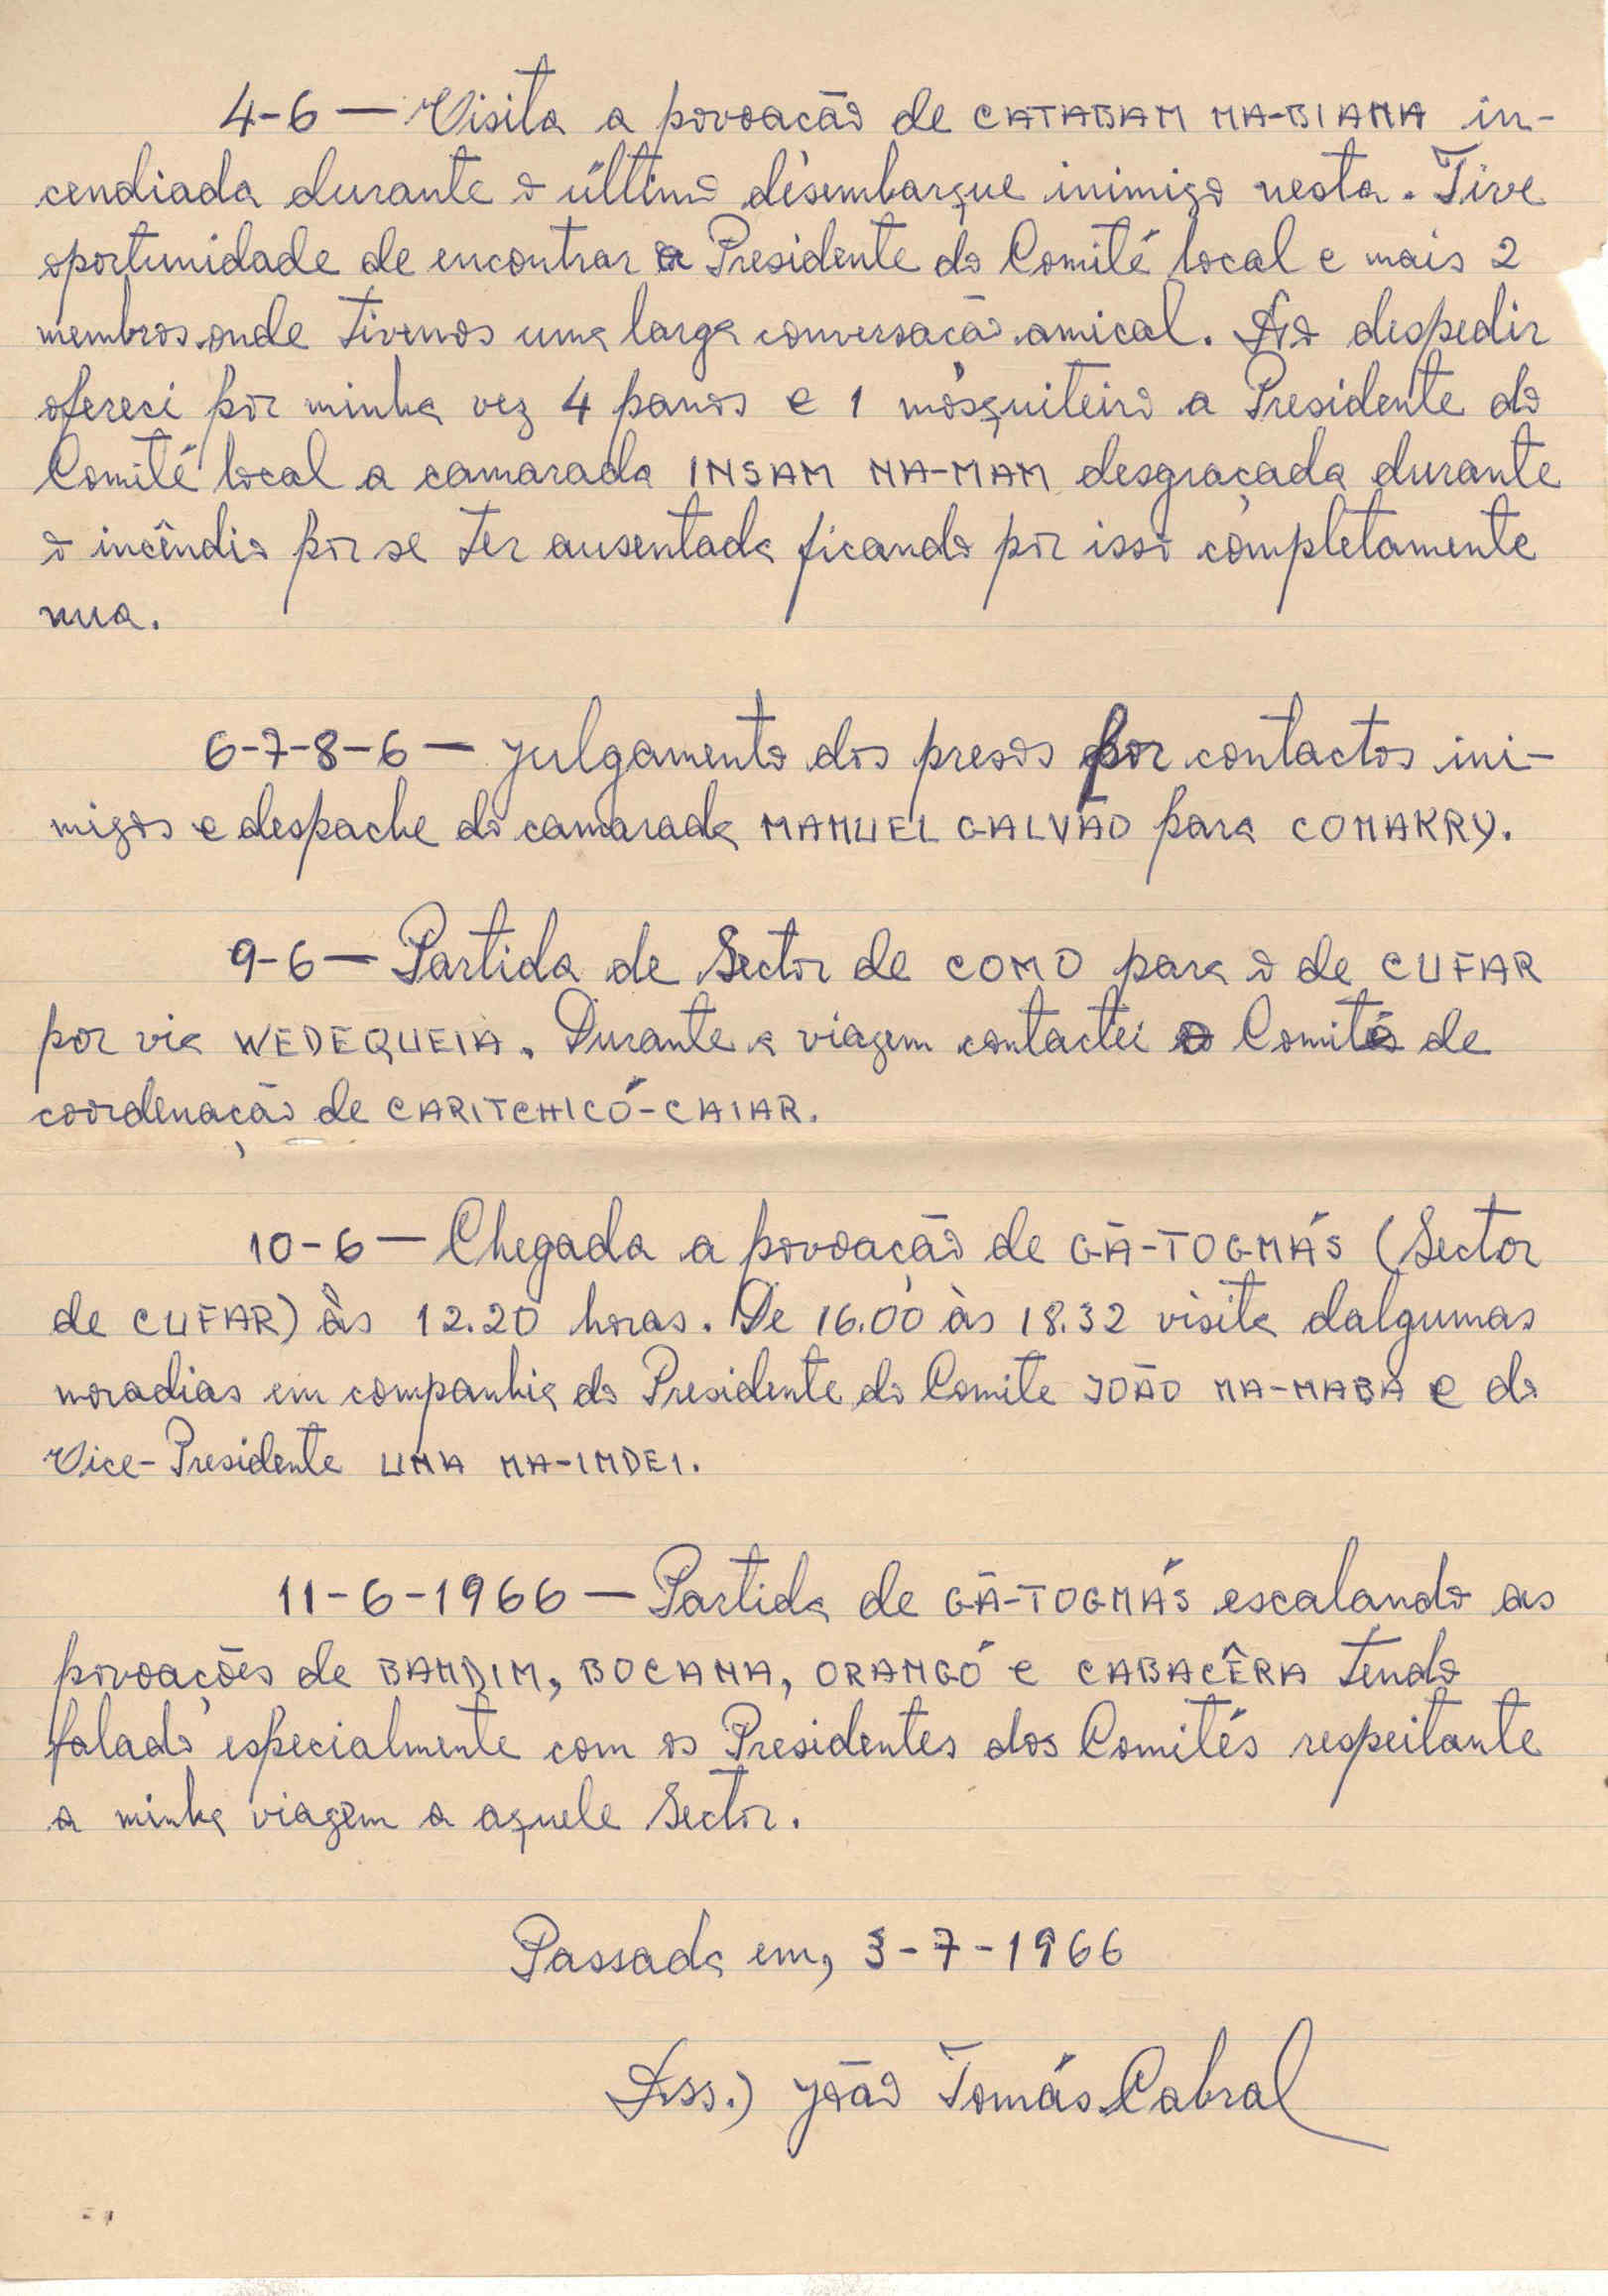 4-6 — Visita a povoação de CATABAM NA-BIANA in-
cendiada durante o último desembarque inimigo nesta. Tive
oportunidade de encontrar a Presidente do Comité local e mais 2
membros onde tivemos uma larga conversacão amical. Ao despedir
ofereci por minha vez 4 panos e 1 mosquiteiro a Presidente do
Comité local a camarada INSAM NA-MAM desgraçada durante
o incêndio por se ter ausentada ficando por isso completamente
nua.
6-7-8-6 — Julgamento dos presos por contactos ini-
migos e despache do camarada MANUEL GALVÃO para CONAKRY.
9-6 — Partida de Sector de COMO para o de CUFAR
por via WEDEQUEIA. Durante a viagem contactei o Comité de
coordenação de CARITCHICÓ-CAIAR.
10-6 — Chegada a povoação de GÃ-TOGMÁS (Sector
de CUFAR) às 12.20 horas. De 16.00 às 18.32 visita dalgumas
moradias em companhia do Presidente do Comite JOÃO NA-MABA e do
Vice-Presidente UNA NA-INDEI.
11-6-1966 — Partida de GÃ-TOGMÁS escalando as
povoações de BANDIM, BOCANA, ORANGÓ e CABACÊRA tendo
falado especialmente com os Presidentes dos Comités respeitante
a minha viagem a aquele Sector.
Passada em, 3-7-1966
Ass.) João Tomás Cabral